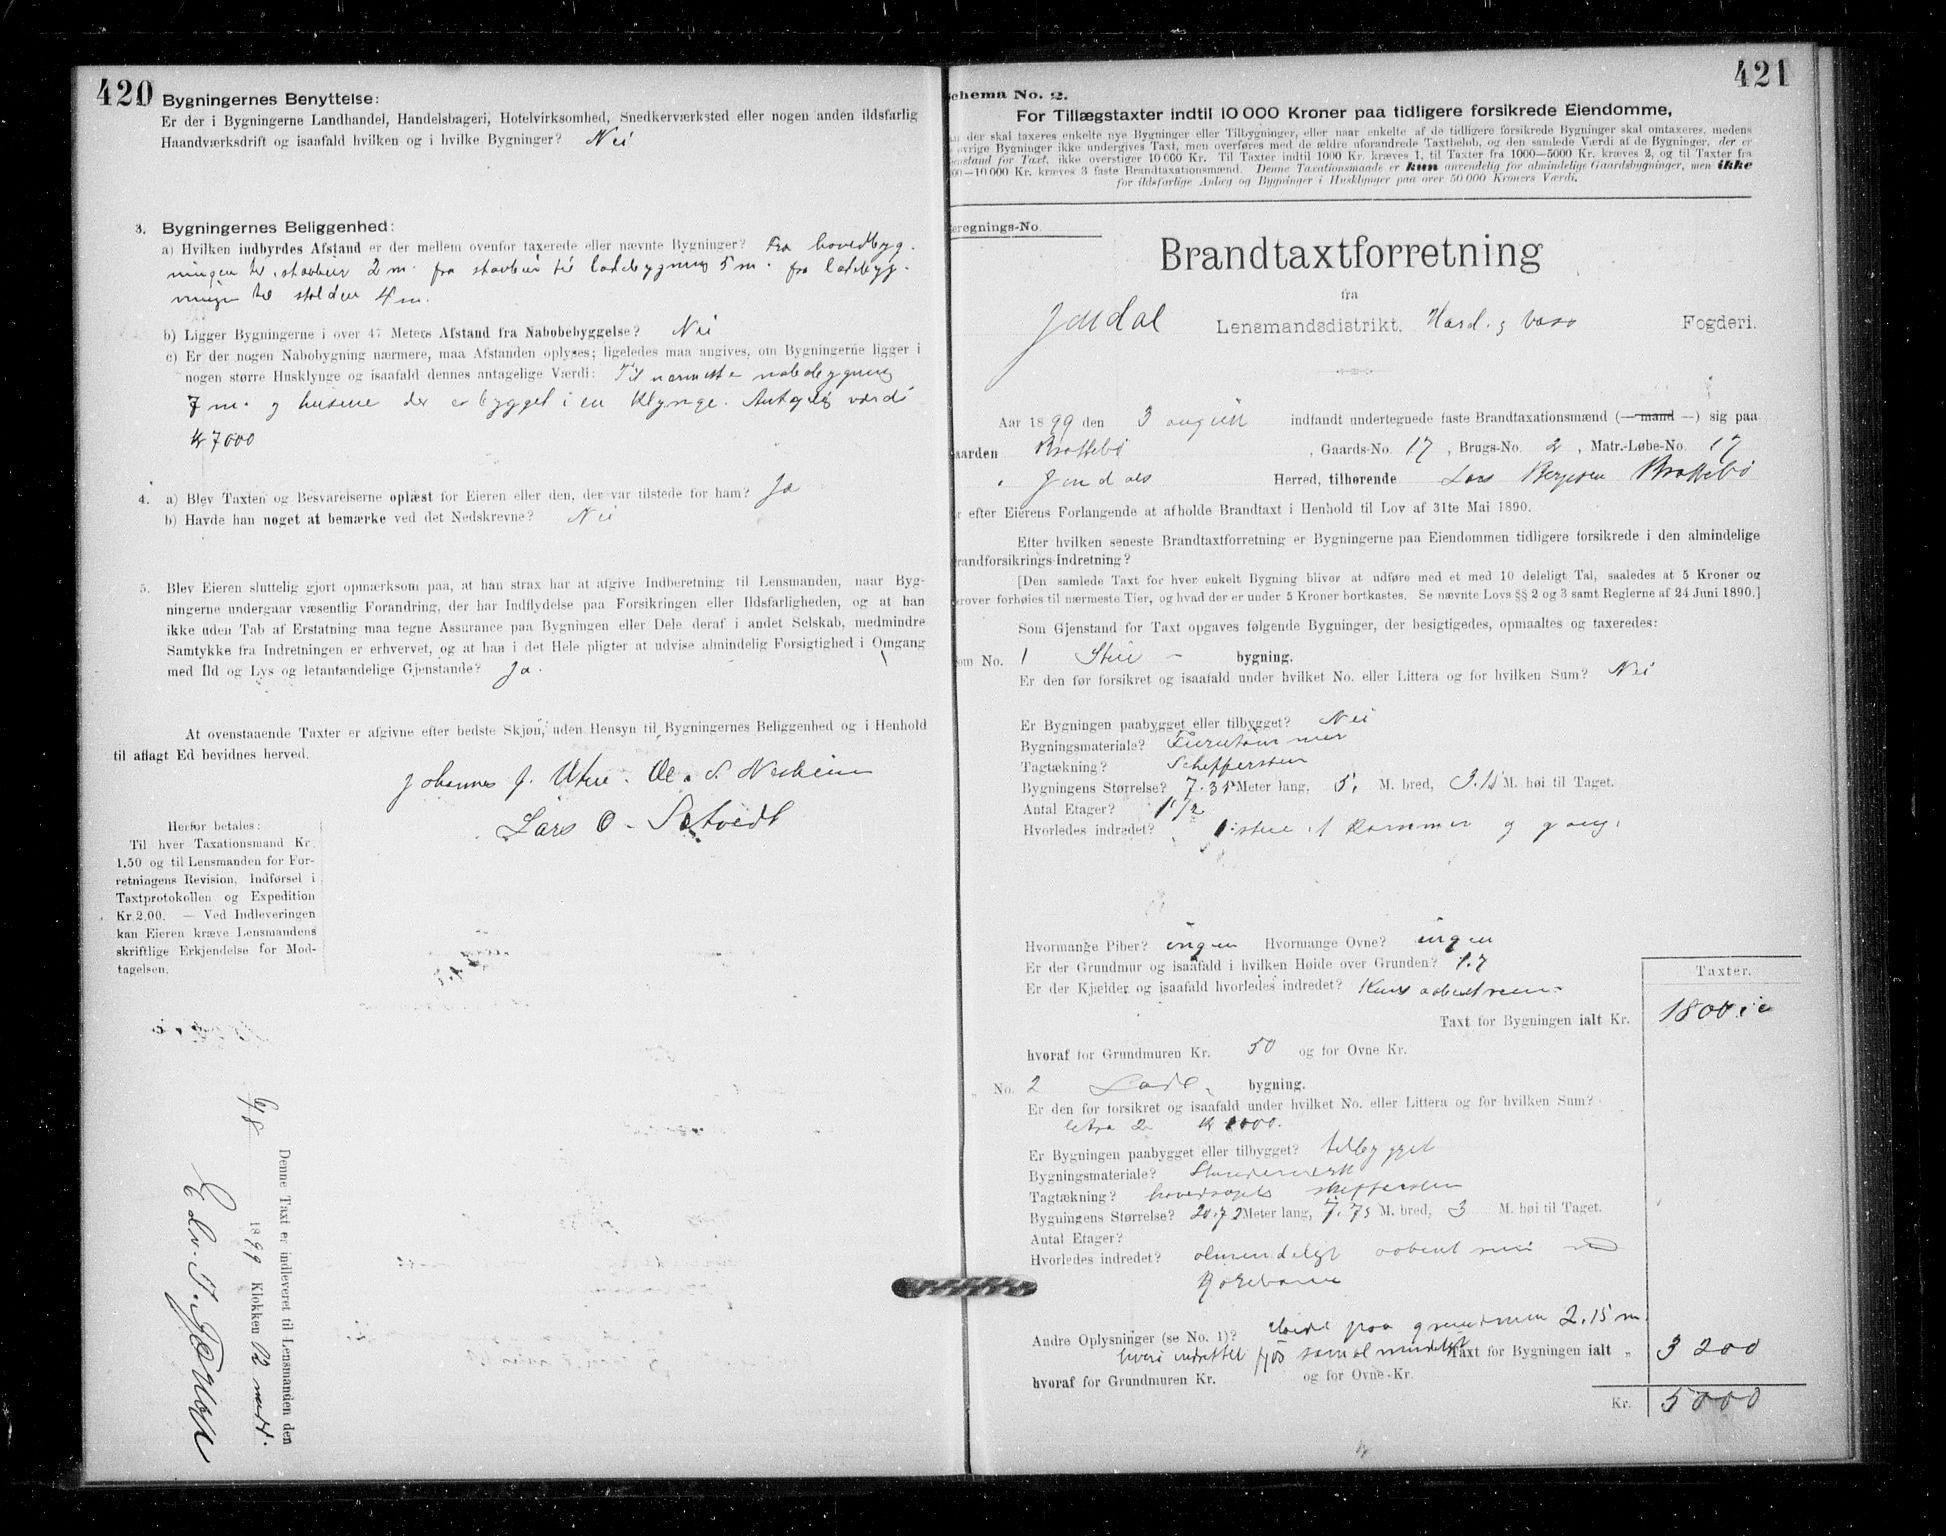 420
Bygningernes Benyttelse:
Er der i Bygningerne Landhandel, Handelsbageri, Hotelvirksomhed, Snedkerværksted eller nogen anden ildsfarlig
Haandværksdrift og isaafald hvilken og i hvilke Bygninger? Nei
3. Bygningernes Beliggenhed:
a) Hvilken indbyrdes Afstand er der mellem ovenfor taxerede eller nævnte Bygninger? Fra hovedbyg-
ningen til stabbur 2 m. fra stabbur til ladebygning 5 m. fra ladebyg-
ningen til stalden 4 m.
b) Ligger Bygningerne i over 47 Meters Afstand fra Nabobebyggelse? Nei
c) Er der nogen Nabobygning nærmere, maa Afstanden oplyses; ligeledes maa angives, om Bygningerne ligger i
nogen større Husklynge og isaafald dennes antagelige Værdi: Til nærmeste nabobygning
7 m. og husene der er bygget i en klynge. Antagelig værdi
kr 7000
4. a) Blev Taxten og Besvarelserne oplæst for Eieren eller den, der var tilstede for ham? Ja
b) Havde han noget at bemærke ved det Nedskrevne? Nei
5. Blev Eieren sluttelig gjort opmærksom paa, at han strax har at afgive Indberetning til Lensmanden, naar Byg-
ningerne undergaar væsentlig Forandring, der har Indflydelse paa Forsikringen eller Ildsfarligheden, og at han
ikke uden Tab af Erstatning maa tegne Assurance paa Bygningen eller Dele deraf i andet Selskab, medmindre
Samtykke fra Indretningen er erhvervet, og at han i det Hele pligter at udvise almindelig Forsigtighed i Omgang
med Ild og Lys og letantændelige Gjenstande? Ja.
At ovenstaaende Taxter er afgivne efter bedste Skjøn, uden Hensyn til Bygningernes Beliggenhed og i Henhold
til aflagt Ed bevidnes herved.
Johannes J. Utne. Ole S. Nesheim
Lars O.
Herfor betales:
Til hver Taxationsmand Kr.
1.50 og til Lensmanden for For-
retningens Revision, Indførsel i
Taxtprotokollen og Expedition
Kr. 2.00. — Ved Indleveringen
kan Eieren kræve Lensmandens
skriftlige Erkjendelse for Mod-
tagelsen.
Denne Taxt er indleveret til Lensmanden den
6/8 1899 Klokken 12 midd.
421
chema No. 2.
For Tillægstaxter indtil 10 000 Kroner paa tidligere forsikrede Eiendomme,
der skal taxeres enkelte nye Bygninger eller Tilbygninger, eller naar enkelte af de tidligere forsikrede Bygninger skal omtaxeres, medens
øvrige Bygninger ikke undergives Taxt, men overføres med de ældre uforandrede Taxtbeløb, og den samlede Værdi af de Bygninger, der er
enstand for Taxt, ikke overstiger 10 000 Kr. Til Taxter indtil 1000 Kr. kræves 1, til Taxter fra 1000—5000 Kr. kræves 2, og til Taxter fra
00—10 000 Kr. kræves 3 faste Brandtaxationsmænd. Denne Taxationsmaade er kun anvendelig for almindelige Gaardsbygninger, men ikke
for ildsfarlige Anlæg og Bygninger i Husklynger paa over 50 000 Kroners Værdi.
eregnings-No.
Brandtaxtforretning
fra
Jondal Lensmandsdistrikt, Hard. og Voss Fogderi.
Aar 1899 den 3 august indfandt undertegnede faste Brandtaxationsmænd (— mand —) sig paa
aarden Brattebø, Gaards-No. 17, Brugs-No. 2, Matr.-Løbe-No. 17
i Jondals Herred, tilhørende Lars Bergesen Brattebø
r efter Eierens Forlangende at afholde Brandtaxt i Henhold til Lov af 31te Mai 1890.
Efter hvilken seneste Brandtaxtforretning er Bygningerne paa Eiendommen tidligere forsikrede i den almindelige
randforsikrings-Indretning?
[Den samlede Taxt for hver enkelt Bygning bliver at udføre med et med 10 deleligt Tal, saaledes at 5 Kroner og
erover forhøies til nærmeste Tier, og hvad der er under 5 Kroner bortkastes. Se nævnte Lovs §§ 2 og 3 samt Reglerne af 24 Juni 1890.]
Som Gjenstand for Taxt opgaves følgende Bygninger, der besigtigedes, opmaaltes og taxeredes:
om No. 1 Stue - bygning.
Er den før forsikret og isaafald under hvilket No. eller Littera og for hvilken Sum? Nei
Er Bygningen paabygget eller tilbygget? Nei
Bygningsmateriale? Furutømmer
Tagtækning? Skeffersten
Bygningens Størrelse? 7.35 Meter lang, 5. M. bred, 3.15 M. høi til Taget.
Antal Etager? 1 1/2
Hvorledes indredet? 1 stue 1 kammer og gang.
Hvormange Piber? ingen Hvormange Ovne? ingen
Er der Grundmur og isaafald i hvilken Høide over Grunden? 1.7
Er der Kjælder og isaafald hvorledes indredet? Kuns aabent rum.
Taxter.
Taxt for Bygningen ialt Kr. 1800
hvoraf for Grundmuren Kr. 50 og for Ovne Kr.
No. 2 Lade- bygning.
Er den før forsikret og isaafald under hvilket No. eller Littera og for hvilken Sum?
letra 2 kr 1000.
Er Bygningen paabygget eller tilbygget? tilbygget
Bygningsmateriale? Stendermerk
Tagtækning? skeffersten
Bygningens Størrelse? 20.72 Meter lang, 7.75 M. bred, 3 M. høi til Taget.
Antal Etager?
Hvorledes indredet? almendeligt aabent rum
Andre Oplysninger (se No. 1)? Høide paa grundmuren 2.15 m.
hvori indrettet fjøs
Taxt for Bygningen ialt „ 3200
hvoraf for Grundmuren Kr. og for Ovne Kr.
Kr. 5000